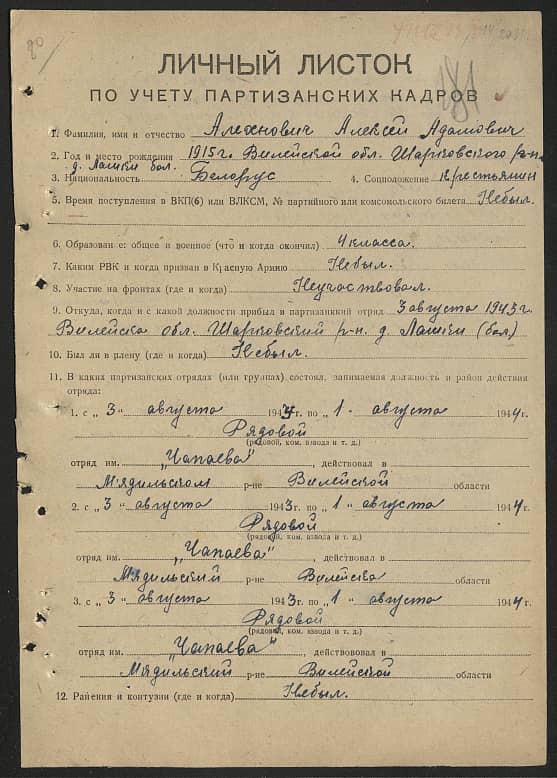 ЛИЧНЫЙ ЛИСТОК
181
ПО УЧЕТУ ПАРТИЗАНСКИХ КАДРОВ
1. Фамилия, имя и отчество Алехнович Алексей Адамович
2. Год и место рождения 1915 г. Вилейской обл. Шарковского р-н
д. Лашки бол.
3. Национальность Белорус 4. Соцположение крестьянин
5. Время поступления в ВКП(б) или ВЛКСМ, № партийного или комсомольского билета Небыл.
6. Образован е: общее и военное (что и когда окончил) 4 класса.
7. Каким РВК и когда призван в Красную Армию Небыл.
8. Участие на фронтах (где и когда) Неучаствовал.
9. Откуда, когда и с какой должности прибыл в партизанский отряд 3 августа 1943 г.
Вилейска обл. Шарковский р-н. д. Лашки (бол)
10. Был ли в плену (где и когда) Небыл.
11. В каких партизанских отрядах (или группах) состоял, занимаемая должность и район действия
отряда:
1. с „ 3 " августа 1943 г. по „ 1 . августа 194 4 г.
Рядовой
(рядовой, ком. взвода и т. д.)
отряд им. „Чапаева" , действовал в
Мядильском р-не Вилейской области
2. с „ 3 " августа 194 3 г. по „ 1 " августа 194 4 г.
Рядовой
(рядовой, ком. взвода и т. д.)
отряд им. „Чапаева" , действовал в
Мядильский р-не Вилейска области
3. с „ 3 " августа 194 3 г. по „ 1 " августа 194 4 г.
Рядовой
(рядовой, ком. взвода и т. д.)
отряд им. „Чапаева" , действовал в
Мядильский р-не Вилейской области
12. Ранения и контузии (где и когда) Небыл.